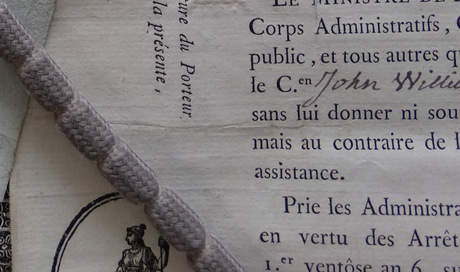 ure du Porteur
la présente,
LE MINISTRE DE
Corps Administratifs,
public, et tous autres qu
le C.en John Willi
sans lui donner ni sou
mais au contraire de l
assistance.
Prie les Administra
en vertu des Arrêt
1.er ventôse an 6, su